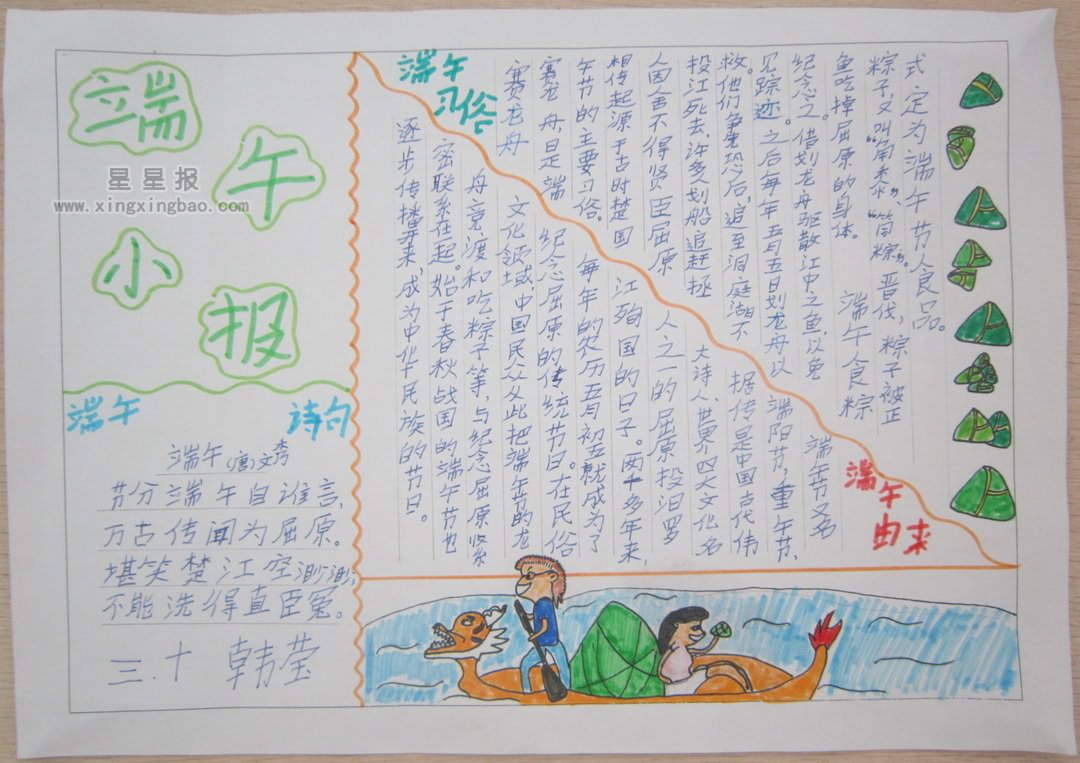 端
午
小
报
星星报
www.xingxingbao.com
端午 诗句
端午 (唐)文秀
节分端午自谁言，
万古传闻为屈原。
堪笑楚江空渺渺，
不能洗得直臣冤。
三.十 韩莹
端午
习俗
赛龙舟
赛龙舟，是端
午节的主要习俗。
相传起源于古时楚国
人因舍不得贤臣屈原
投江死去，许多划船追赶拯
救。他们争先恐后，追至洞庭湖不
见踪迹。之后每年五月五日划龙舟以
纪念之。借划龙舟驱散江中之鱼，以免
鱼吃掉屈原的身体。 端午食粽
粽子，又叫“角黍”、“筒粽”。晋代，粽子被正
式定为端午节食品。
端午
由来
端午节又名
端阳节，重午节，
据传是中国古代伟
大诗人、世界四大文化名
人之一的屈原投汨罗
江殉国的日子。两千多年来，
每年的农历五月初五就成为了
纪念屈原的传统节日。在民俗
文化领域中国民众从此把端午节的龙
舟竞渡和吃粽子等，与纪念屈原紧
密联系在起。始于春秋战国的端午节也
逐步传播开来，成为中华民族的节日。